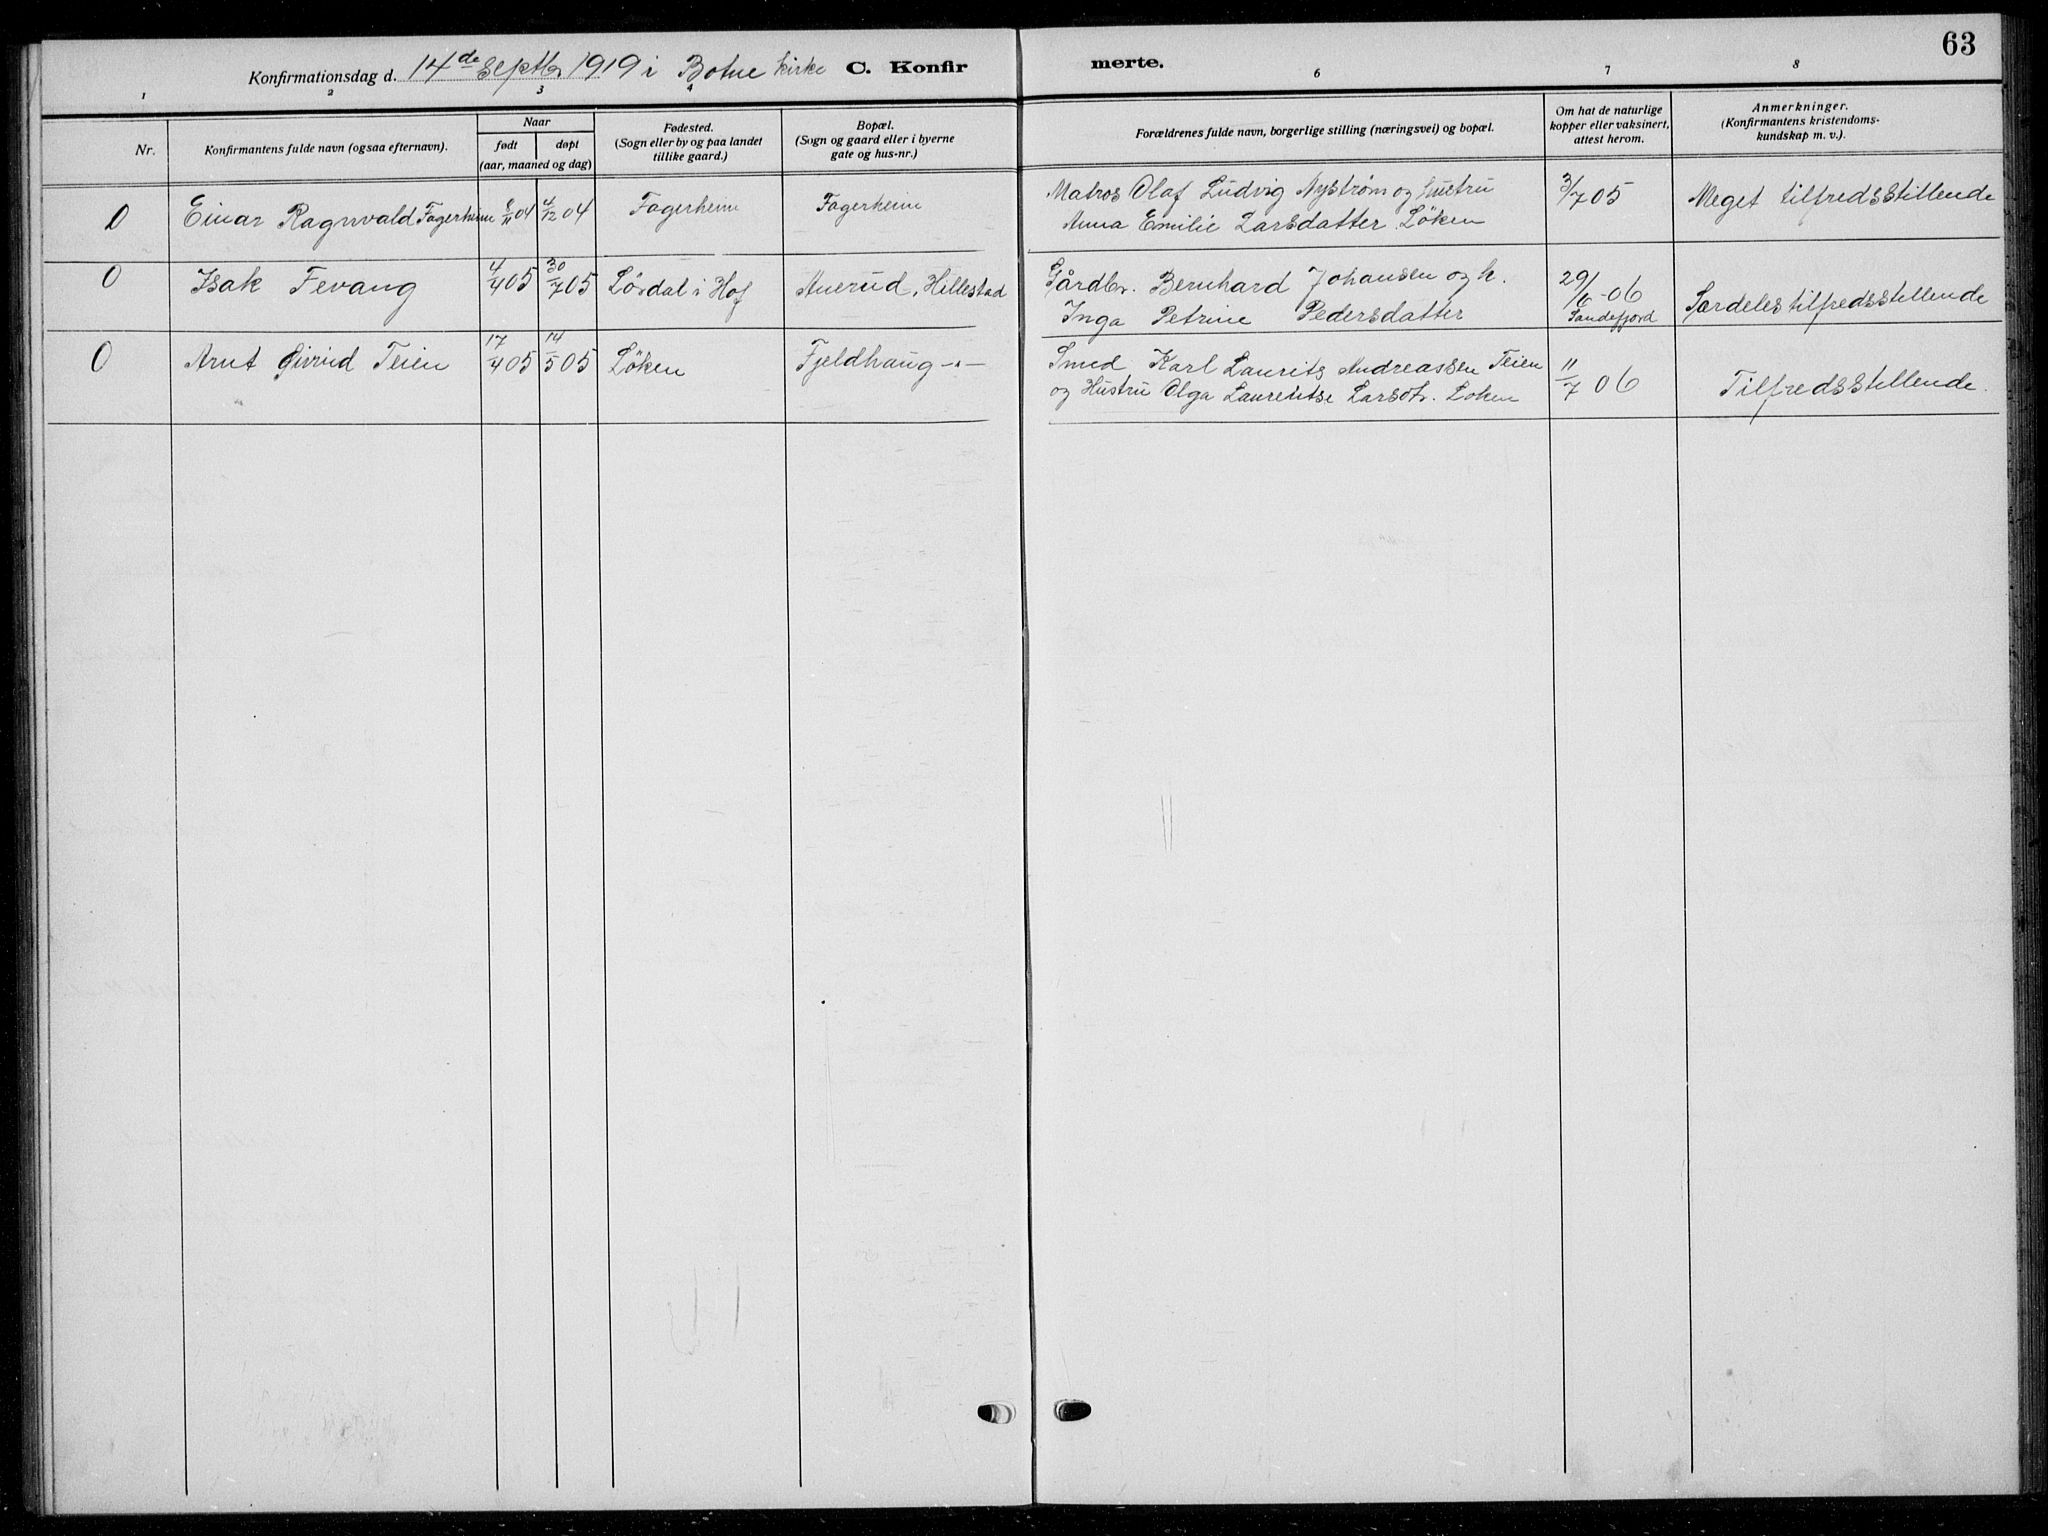 63
Konfirmationsdag d. 14de Septbr 1919 i Botne kirke C. Konfirmerte.
1 2 3 4 6 7 8
Nr.
Konfirmantens fulde navn (ogsaa efternavn).
Naar
født døpt
(aar, maaned og dag)
Fødested.
(Sogn eller by og paa landet
tillike gaard.)
Bopæl.
(Sogn og gaard eller i byerne
gate og hus-nr.)
Forældrenes fulde navn, borgerlige stilling (næringsvei) og bopæl.
Om hat de naturlige
kopper eller vaksinert,
attest herom.
Anmerkninger.
(Konfirmantens kristendoms-
kundskap m. v.).
0 Einar Ragnvald Fagerheim 8/11 04 4/12 04 Fagerheim Fagerheim Matros Olaf Ludvig Nystrøm og hustru 3/7 05 Meget tilfredsstillende
Anna Emilie Larsdatter Løken
0 Isak Fevang 4/4 05 30/7 05 Lørdal i Hof Auerud, Hillestad Gårdbr. Bernhard Johansen og h. 29/6-06 Særdeles tilfredsstillende
Inga Petrine Pedersdatter Sandefjord
0 Arnt Øivind Teien 17/4 05 14/5 05 Løken Fjeldhaug -"- Smed Karl Laurits Andreassen Teien 11/7 06 Tilfredsstillende.
og Hustru Olga Laurentse Larsdt. Løken